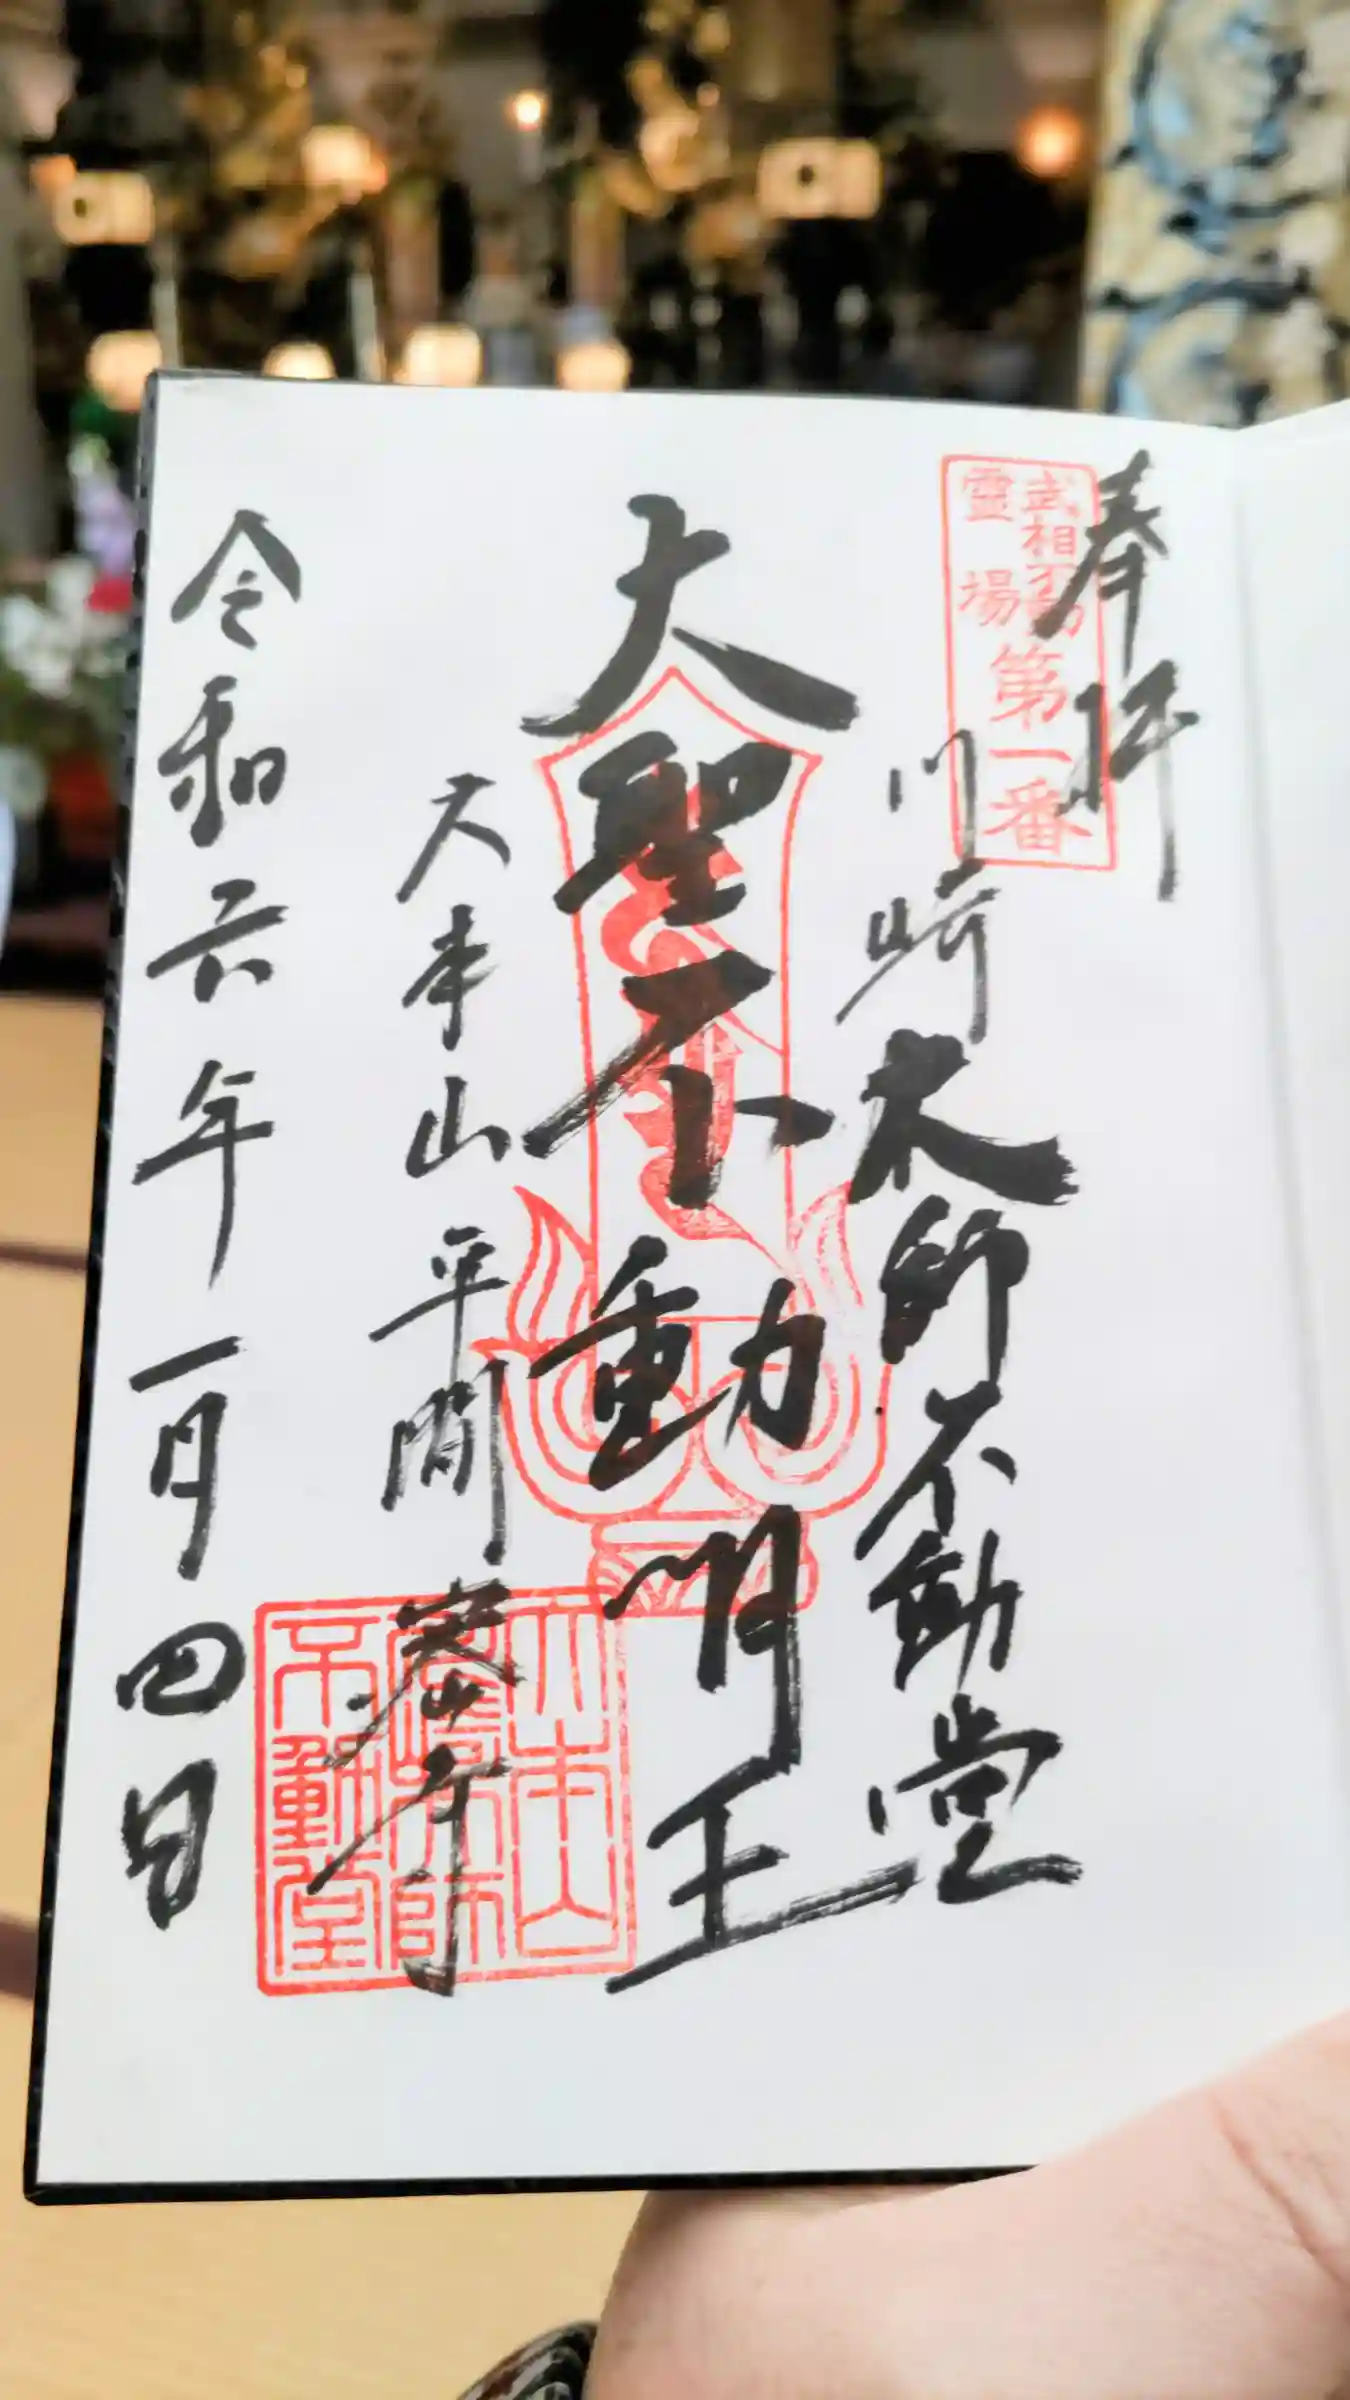 奉拝
武相不動
靈場
第一番
川崎大師不動堂
大聖不動明王
大本山平間密寺
大本山
川崎大師
不動堂
令和六年一月四日